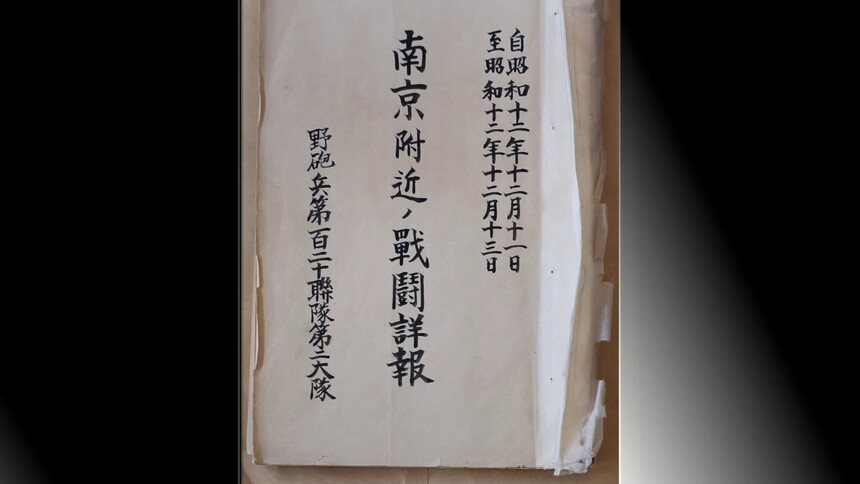 自昭和十二年十二月十一日
至昭和十二年十二月十三日
南京附近ノ戰鬪詳報
野砲兵第一百二十聯隊第二大隊